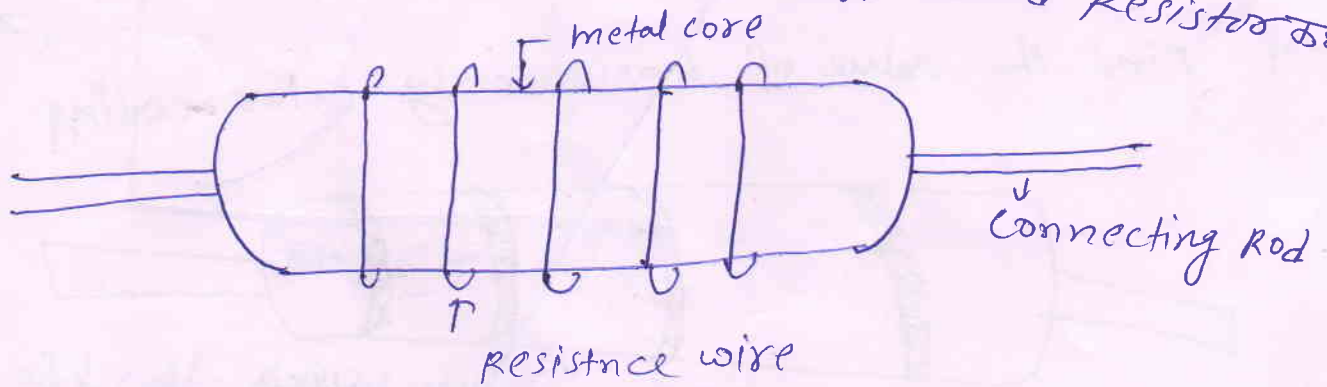 Resistor
metal core
Connecting Rod
Resistnce wire